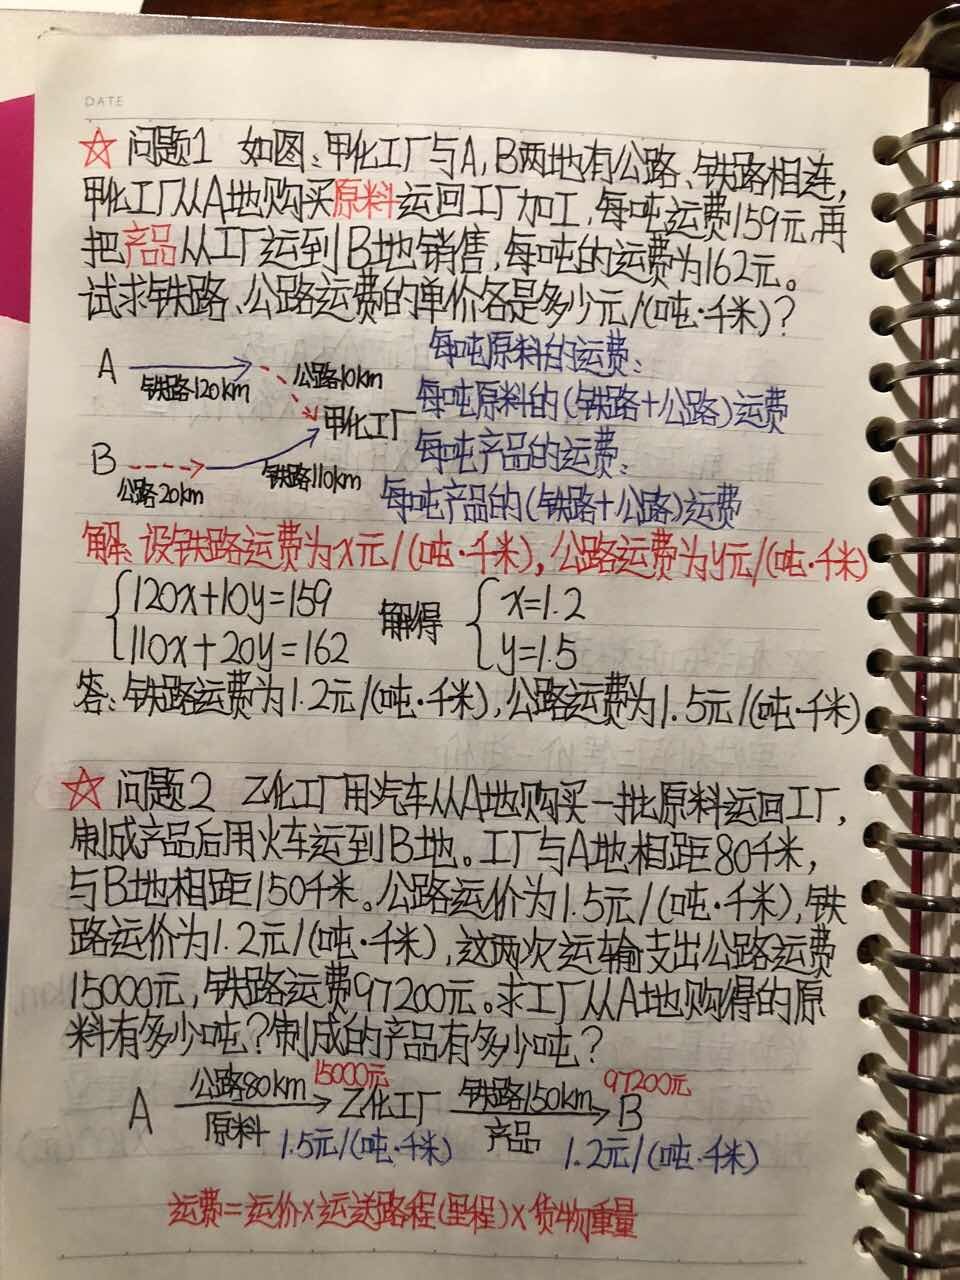 DATE
☆ 问题1 如图：甲化工厂与A，B两地有公路、铁路相连，
甲化工厂从A地购买原料运回工厂加工，每吨运费159元，再
把产品从工厂运到B地销售，每吨的运费为162元。
试求铁路、公路运费的单价各是多少元/(吨·千米)？
每吨原料的运费：
A 铁路120km 公路10km
每吨原料的(铁路+公路)运费
甲化工厂
每吨产品的运费：
B 公路20km 铁路110km
每吨产品的(铁路+公路)运费
解：设铁路运费为x元/(吨·千米)，公路运费为y元/(吨·千米)
{120x+10y=159 解得 {x=1.2
110x+20y=162 y=1.5
答：铁路运费为1.2元/(吨·千米)，公路运费为1.5元/(吨·千米)
☆ 问题2 乙化工厂用汽车从A地购买一批原料运回工厂，
制成产品后用火车运到B地。工厂与A地相距80千米，
与B地相距150千米。公路运价为1.5元/(吨·千米)，铁
路运价为1.2元/(吨·千米)，这两次运输支出公路运费
15000元，铁路运费97200元。求工厂从A地购得的原
料有多少吨？制成的产品有多少吨？
公路80km 15000元 铁路150km 97200元
A → 乙化工厂 → B
原料 1.5元/(吨·千米) 产品 1.2元/(吨·千米)
运费=运价×运送路程(里程)×货物重量